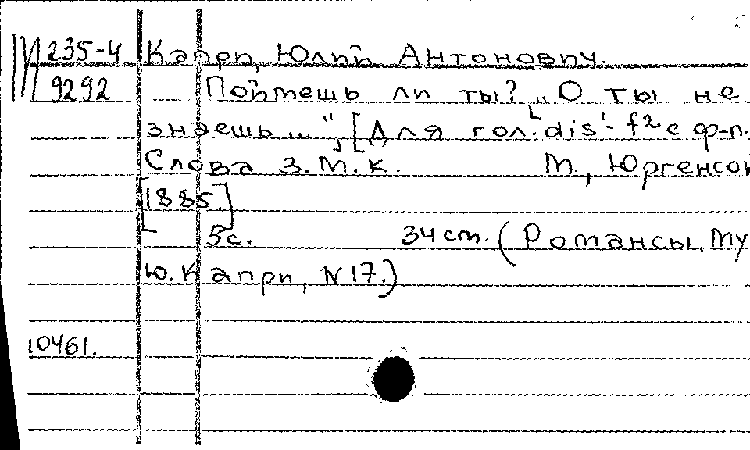 М 235-4 Капри, Юлий Антонович.
9292 Поймешь ли ты? „О ты не
знаешь..", [Для гол. dis¹-f² с ф-п.]
Слова З.М.К. М., Юргенсон
[1885]
5с. 34 ст. (Романсы. Му
Ю. Капри, N 17.)
10461.